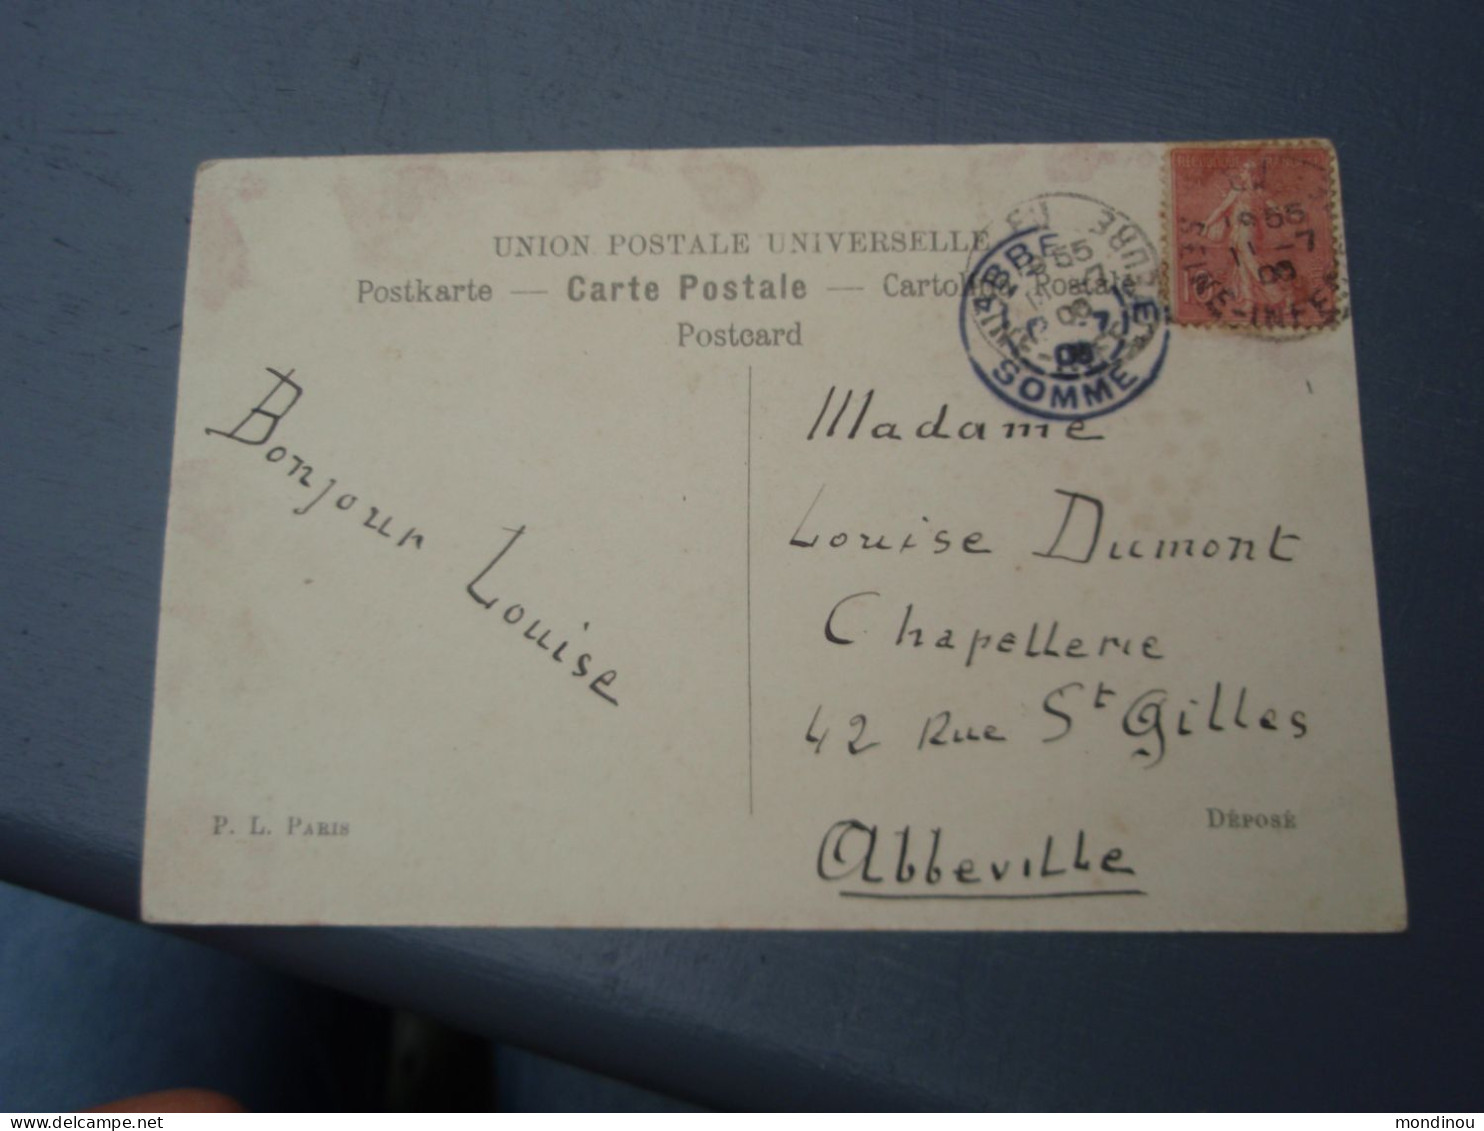 UNION POSTALE UNIVERSELLE
Postkarte — Carte Postale — Cartolina Postale
Postcard
ABBEVILLE
SOMME
SEINE-INFER
1855
11 -7
Bonjour Louise
Madame
Louise Dumont
Chapellerie
42 Rue St Gilles
Abbeville
P. L. PARIS
DÉPOSÉ
delcampe.net
mondinou